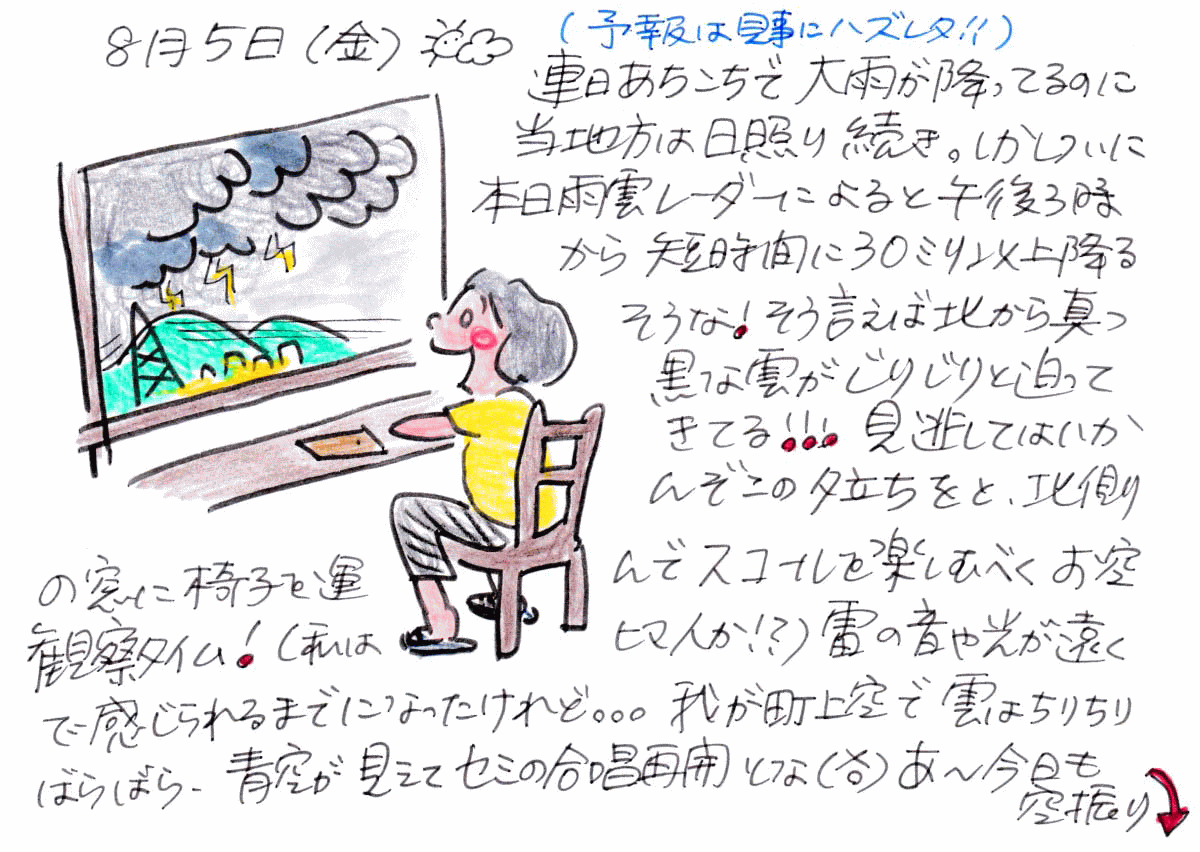 8月5日(金)
(予報は見事にハズレタ!!)
連日あちこちで大雨が降ってるのに
当地方は日照り続き。しかしついに
本日雨雲レーダーによると午後3時
から短時間に30ミリ以上降る
そうな!そう言えば北から真っ
黒な雲がじりじりと迫って
きてる!!!見逃してはいか
んぞこの夕立ちをと、北側
の窓に椅子を運んでスコールを楽しむべくお空
観察タイム!(私はヒマ人か!?)雷の音や光が遠く
で感じられるまでになったけれど...我が町上空で雲はちりちり
ばらばら、青空が見えてセミの合唱再開とな(な)あ~今日も
空振り